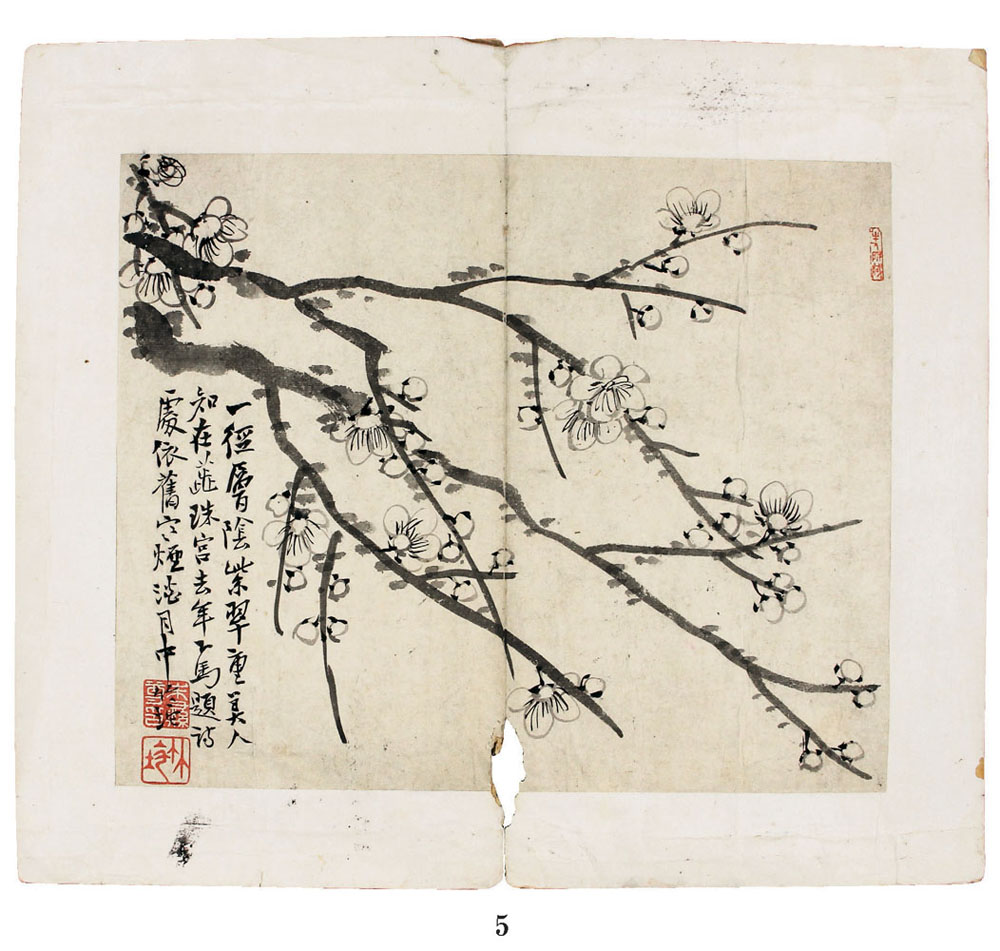 一徑層陰紫翠重美人
知在蕋珠宮去年下馬題詩
處依舊空煙澹月中
5